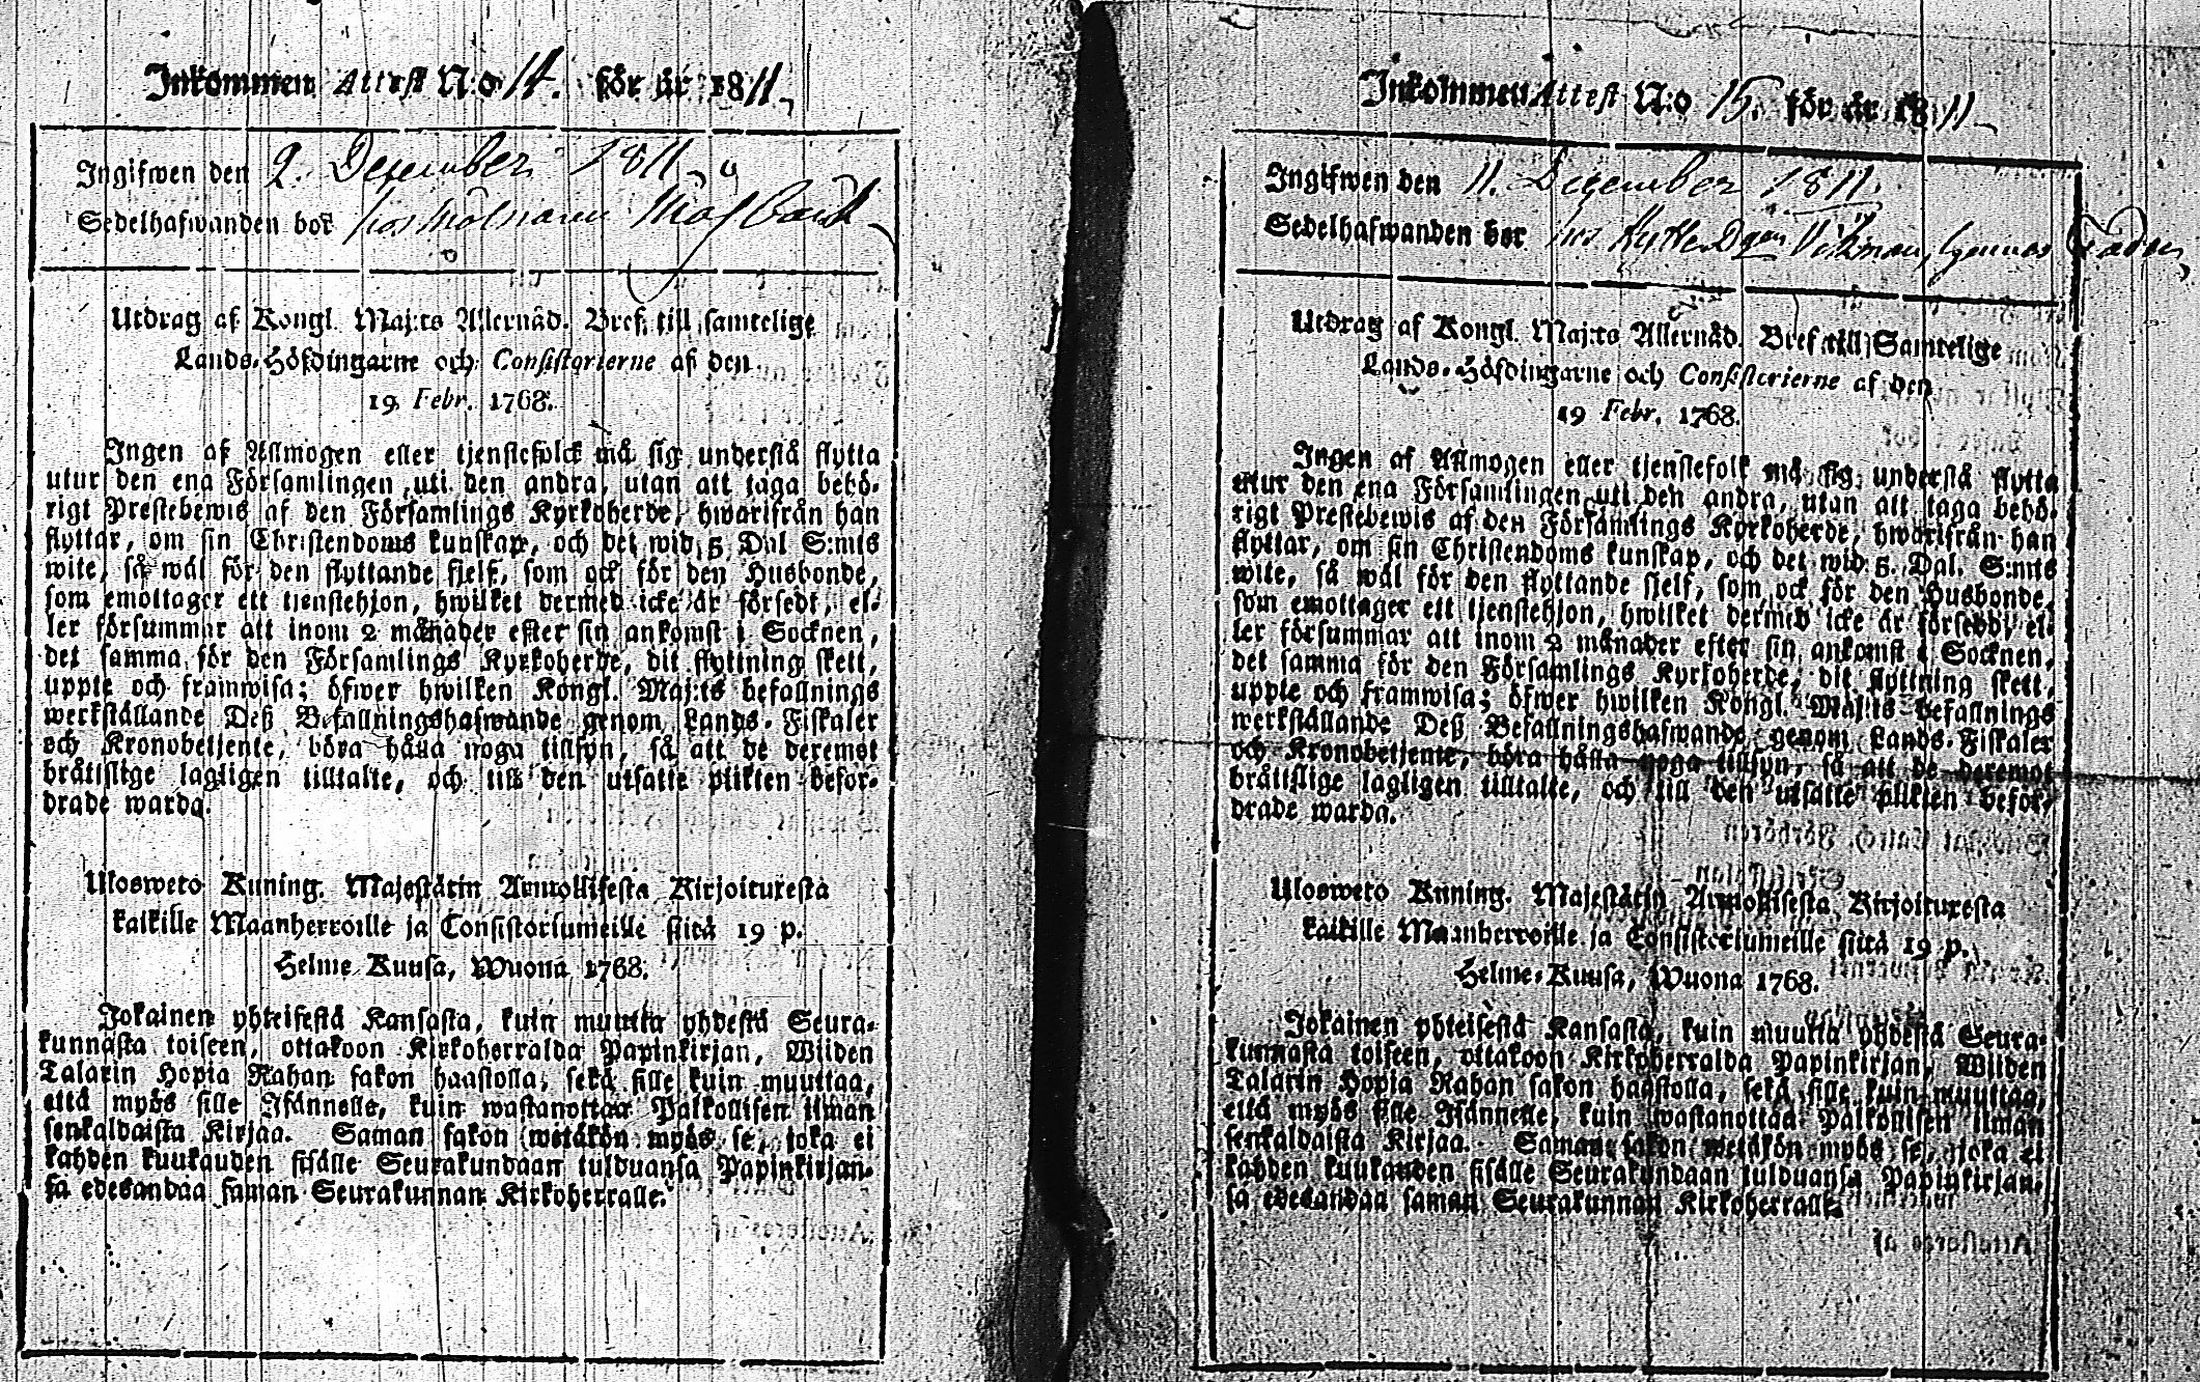 Inkommen Attest N:o 14. för år 1811
Ingifwen den 2. December 1811.
Sedelhafwanden bor hos
Utdrag af Kongl. Maj:ts Allernåd. Bref till samtelige
Lands-Höfdingarne och Consistorierne af den
19 Febr. 1768.
Ingen af Allmogen eller tjenstefolck må sig understå flytta
utur den ena Församlingen uti den andra, utan att taga behö-
rigt Prestebewis af den Församlings Kyrkoherde, hwarifrån han
flyttar, om sin Christendoms kunskap, och det wid 5 Dal S:mts
wite, så wäl för den flyttande sjelf, som ock för den Husbonde,
som emottager ett tjenstehjon, hwilket dermed icke är försedt, el-
ler försummar att inom 2 månader efter sin ankomst i Socknen,
det samma för den Församlings Kyrkoherde, dit flyttning skett,
uppte och framwisa; öfwer hwilken Kongl. Maj:ts befallnings
werkställande Deß Befallningshafwande genom Lands-Fiskaler
och Kronobetjente, böra hålla noga tillsyn, så att de deremot
bråttslige lagligen tilltalte, och till den utsatte plikten befor-
drade warda.
Ulosweto Kuning. Majestätin Armollisesta Kirjoituxesta
kaikille Maanherroille ja Consistoriumeille siitä 19 p.
Helme-Kuusa, Wuona 1768.
Jokainen yhteisestä Kansasta, kuin muutta yhdestä Seura-
kunnasta toiseen, ottakoon Kirkoherralda Papinkirjan, Wiiden
Talarin Hopia Rahan sakon haastolla, sekä sille kuin muuttaa,
että myös sille Isännelle, kuin wastanottaa Palkollisen ilman
senkaldaista Kirjaa. Saman sakon wetäkön myös se, joka ei
kahden kuukauden sisälle Seurakundaan tulduansa Papinkirjan-
sa edesandaa saman Seurakunnan Kirkoherralle.
Inkommen Attest N:o 15. för år 1811
Ingifwen den 11. December 1811.
Sedelhafwanden bor hos
Utdrag af Kongl. Maj:ts Allernåd. Bref till Samtelige
Lands-Höfdingarne och Consistorierne af den
19 Febr. 1768.
Ingen af Allmogen eller tjenstefolk må sig understå flytta
utur den ena Församlingen uti den andra, utan att taga behö-
rigt Prestebewis af den Församlings Kyrkoherde, hwarifrån han
flyttar, om sin Christendoms kunskap, och det wid 5. Dal. S:mts
wite, så wäl för den flyttande sjelf, som ock för den Husbonde,
som emottager ett tjenstehjon, hwilket dermed icke är försedd, el-
ler försummar att inom 2 månader efter sin ankomst i Socknen,
det samma för den Församlings Kyrkoherde, dit flyttning skett,
uppte och framwisa; öfwer hwilken Kongl. Maj:ts befallnings
werkställande Deß Befallningshafwande genom Lands-Fiskaler
och Kronobetjente, böra hålla noga tillsyn, så att de deremot
bråttslige lagligen tilltalte, och till den utsatte plikten beför-
drade warda.
Ulosweto Kuning. Majestätin Armollisesta Kirjoituxesta
kaikille Maanherroille ja Consistoriumeille siitä 19 p.
Helme-Kuusa, Wuona 1768.
Jokainen yhteisestä Kansasta, kuin muutta yhdestä Seura-
kunnasta toiseen, ottakoon Kirkoherralda Papinkirjan, Wiiden
Talarin Hopia Rahan sakon haastolla, sekä sille kuin muuttaa,
että myös sille Isännelle, kuin wastanottaa Palkollisen ilman
senkaldaista Kirjaa. Saman sakon wetäkön myös se, joka ei
kahden kuukauden sisälle Seurakundaan tulduansa Papinkirjan-
sa edesandaa saman Seurakunnan Kirkoherralle.